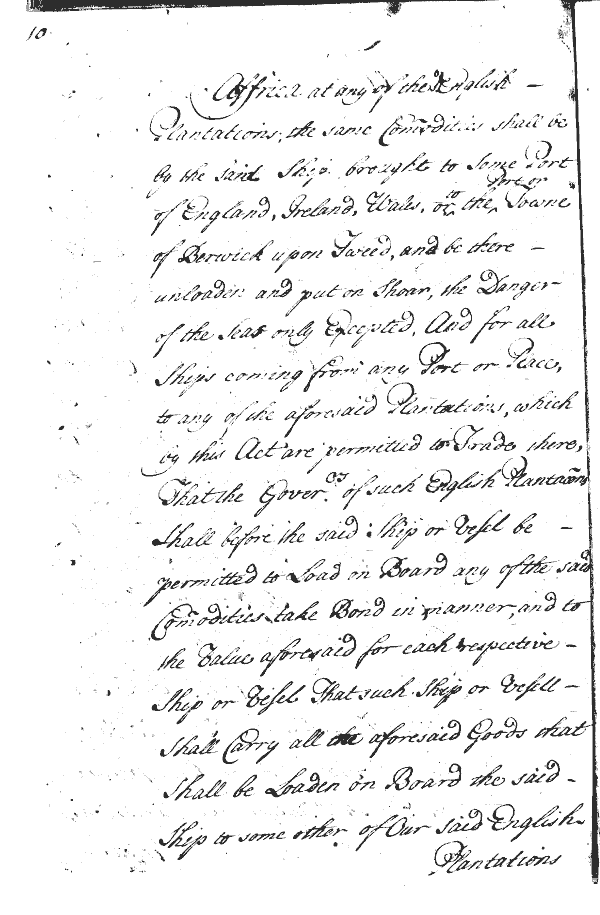 10
Affrica at any of the English –
Plantations, the same Comodities shall be
by the said Ship brought to some Port
of England, Ireland, Wales, or to the Port or Towne
of Berwick upon Tweed, and be there –
unloaden and put on Shoar, the Danger
of the Seas only Excepted, And for all
Ships coming from any Port or Place,
to any of the aforesaid Plantations, which
by this Act are permitted to Trade there,
That the Goverrs. of such English Plantacons
shall before the said Ship or Vesel be –
permitted to Load on Board any of the said
Comodities take Bond in manner, and to
the Value aforesaid for each respective –
Ship or Vesel That such Ship or Vesell –
shall Carry all the aforesaid Goods that
shall be Loaden on Board the said –
Ship to some other of Our said English
Plantations